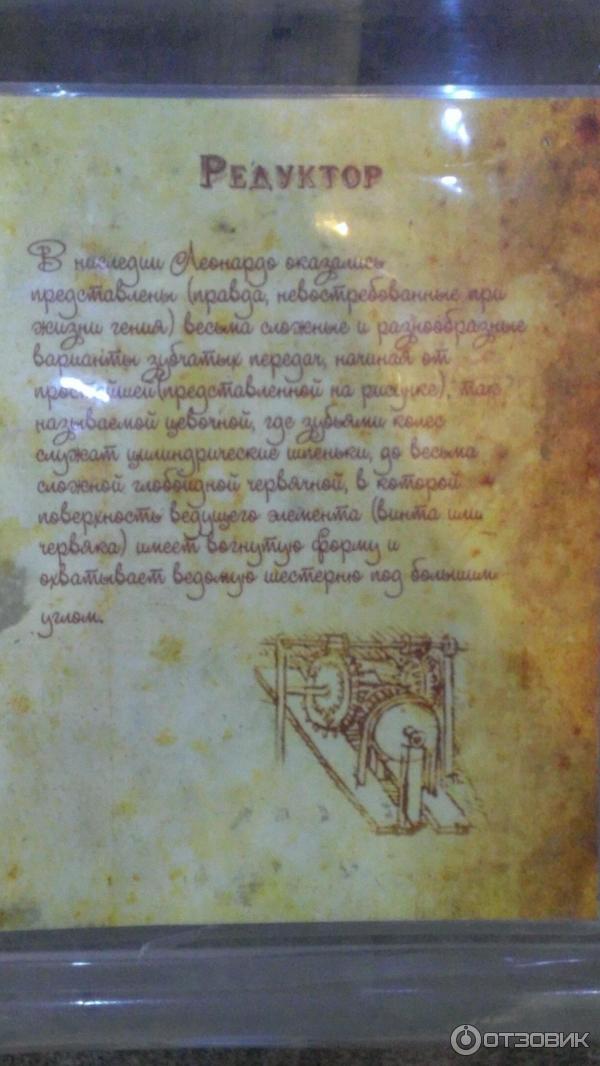 Редуктор
В наследии Леонардо оказались
представлены (правда, невостребованные при
жизни гения) весьма сложные и разнообразные
варианты зубчатых передач, начиная от
простейшей(представленной на рисунке), так
называемой цевочной, где зубьями колес
служат цилиндрические шпеньки, до весьма
сложной глобоидной червячной, в которой
поверхность ведущего элемента (винта или
червяка) имеет вогнутую форму и
охватывает ведомую шестерню под большим
углом.
ОТЗОВИК